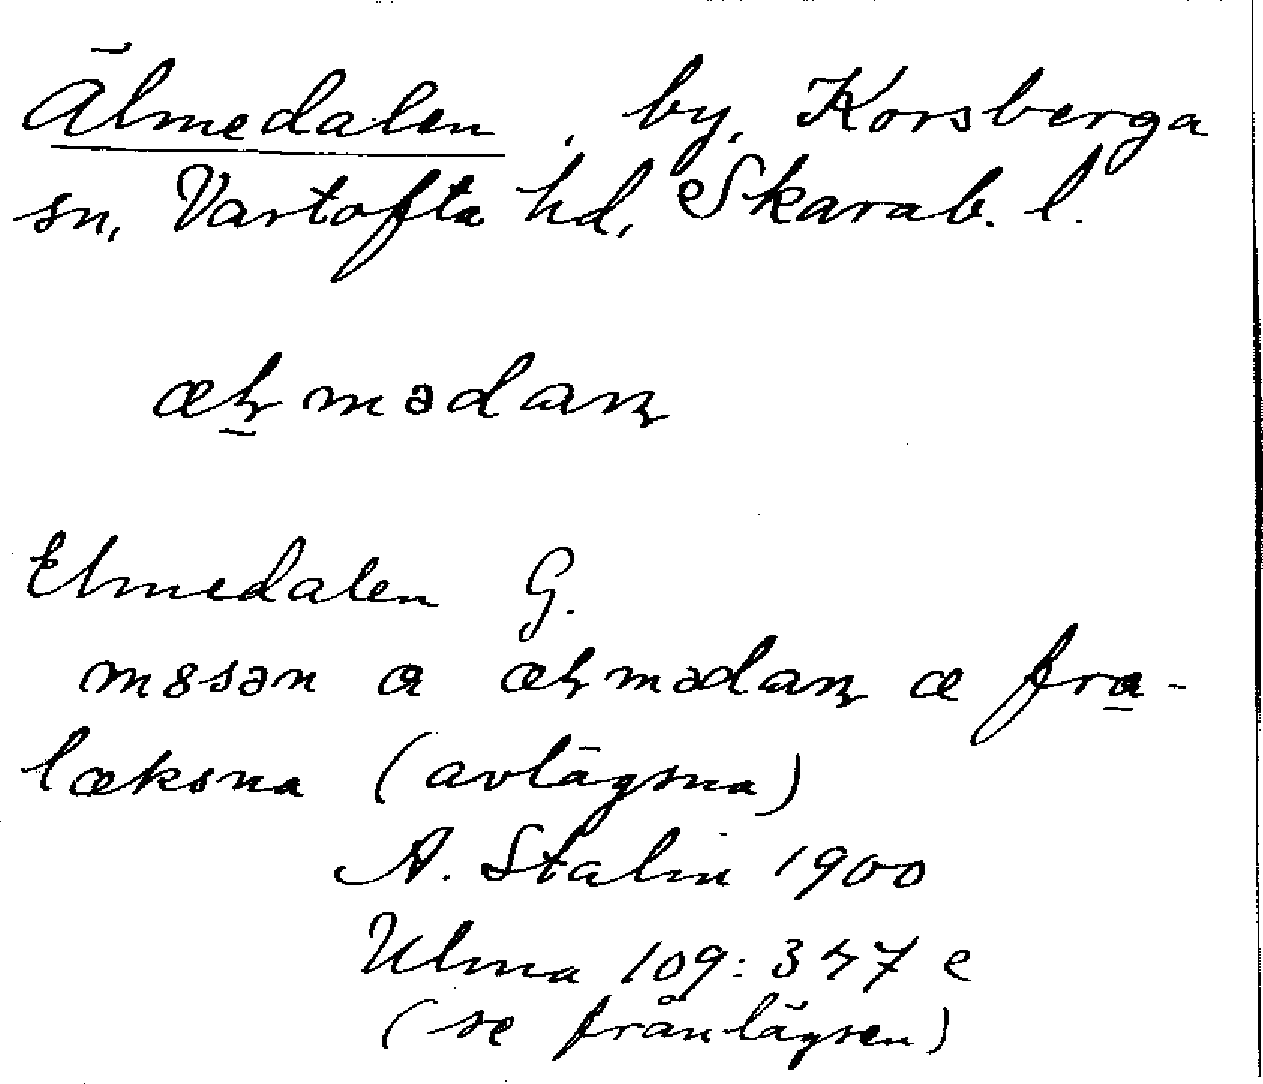 Älmedalen, by, Korsberga
sn, Vartofta hd, Skarab. l.
æɫ̠mədaɳ
Elmedalen G.
m8sən a æɫmədaɳ æ fra̠-
læksna (avlägsna)
A. Stalin 1900
Ulma 109: 347 e
(se frånlägsen)